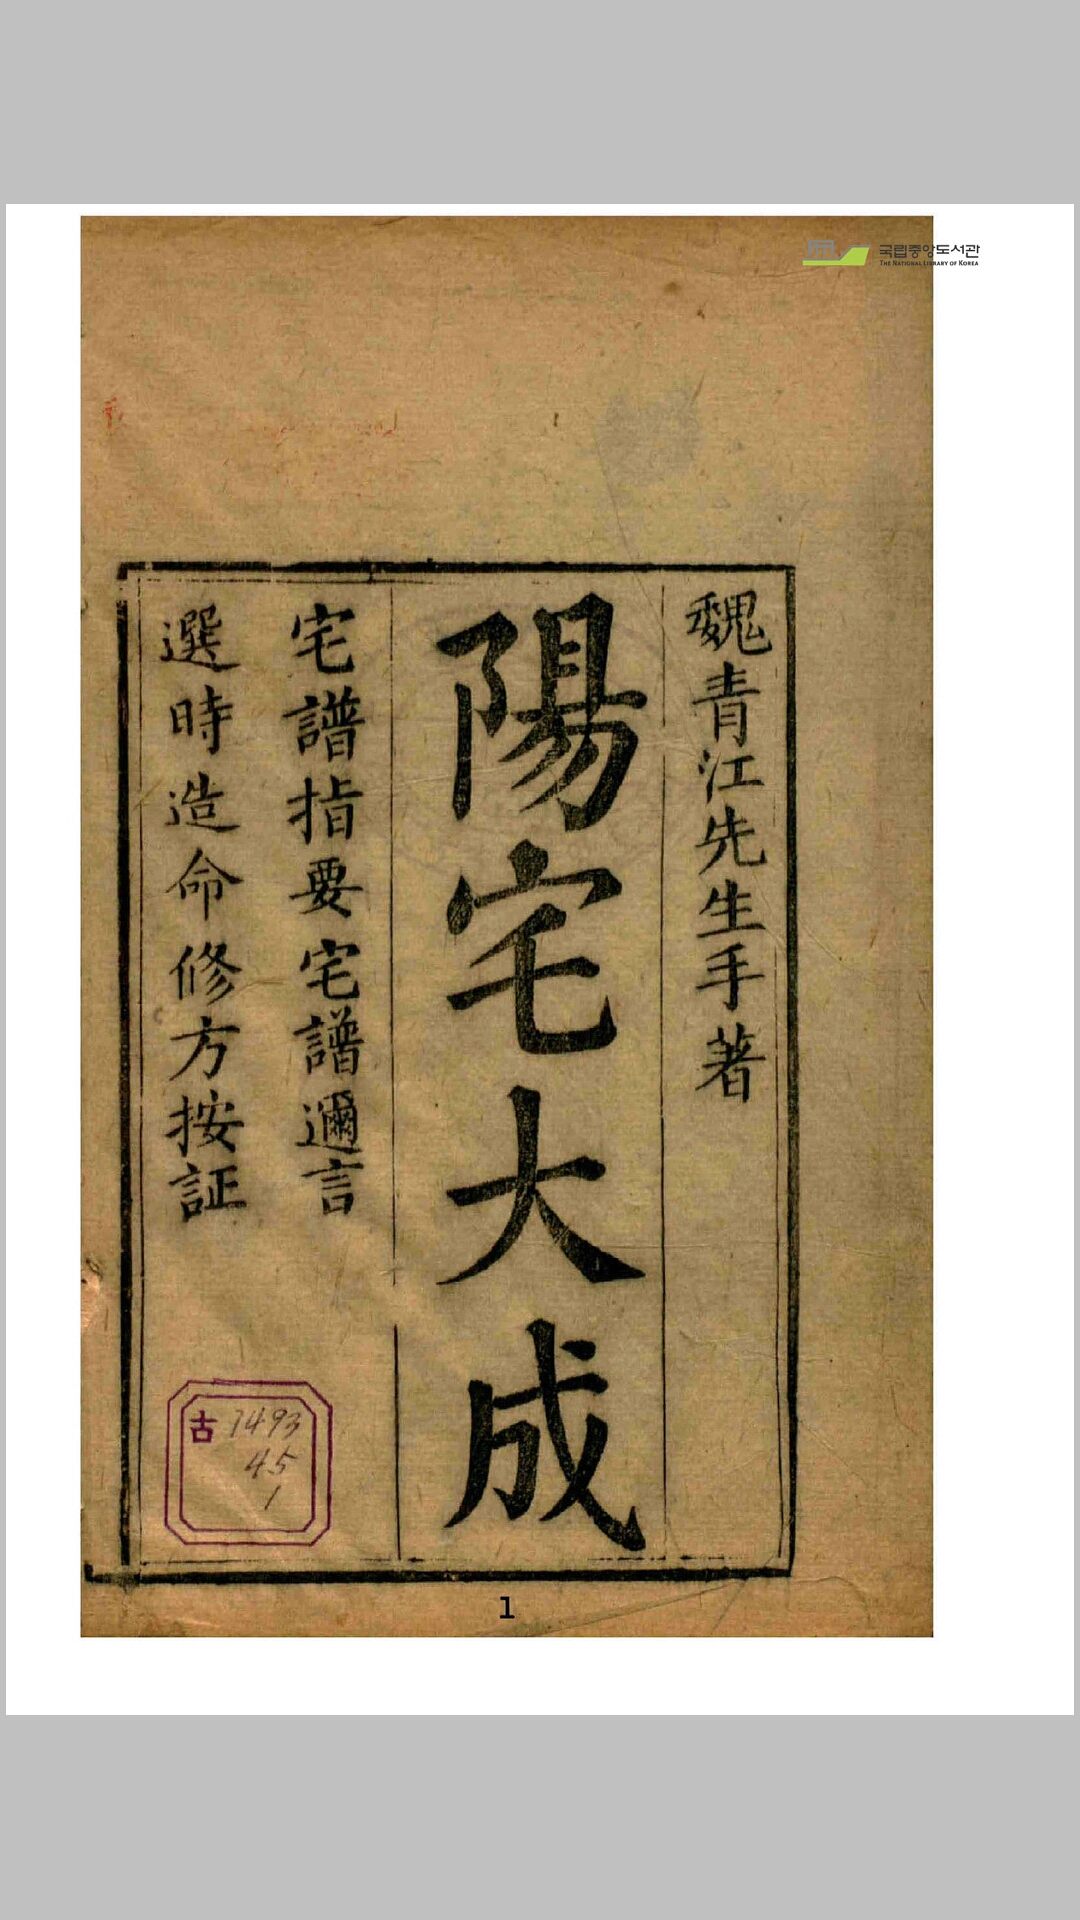 국립중앙도서관
THE NATIONAL LIBRARY OF KOREA
魏青江先生手著
陽宅大成
宅譜指要宅譜邇言
選時造命修方按証
古 1493
45
1
1